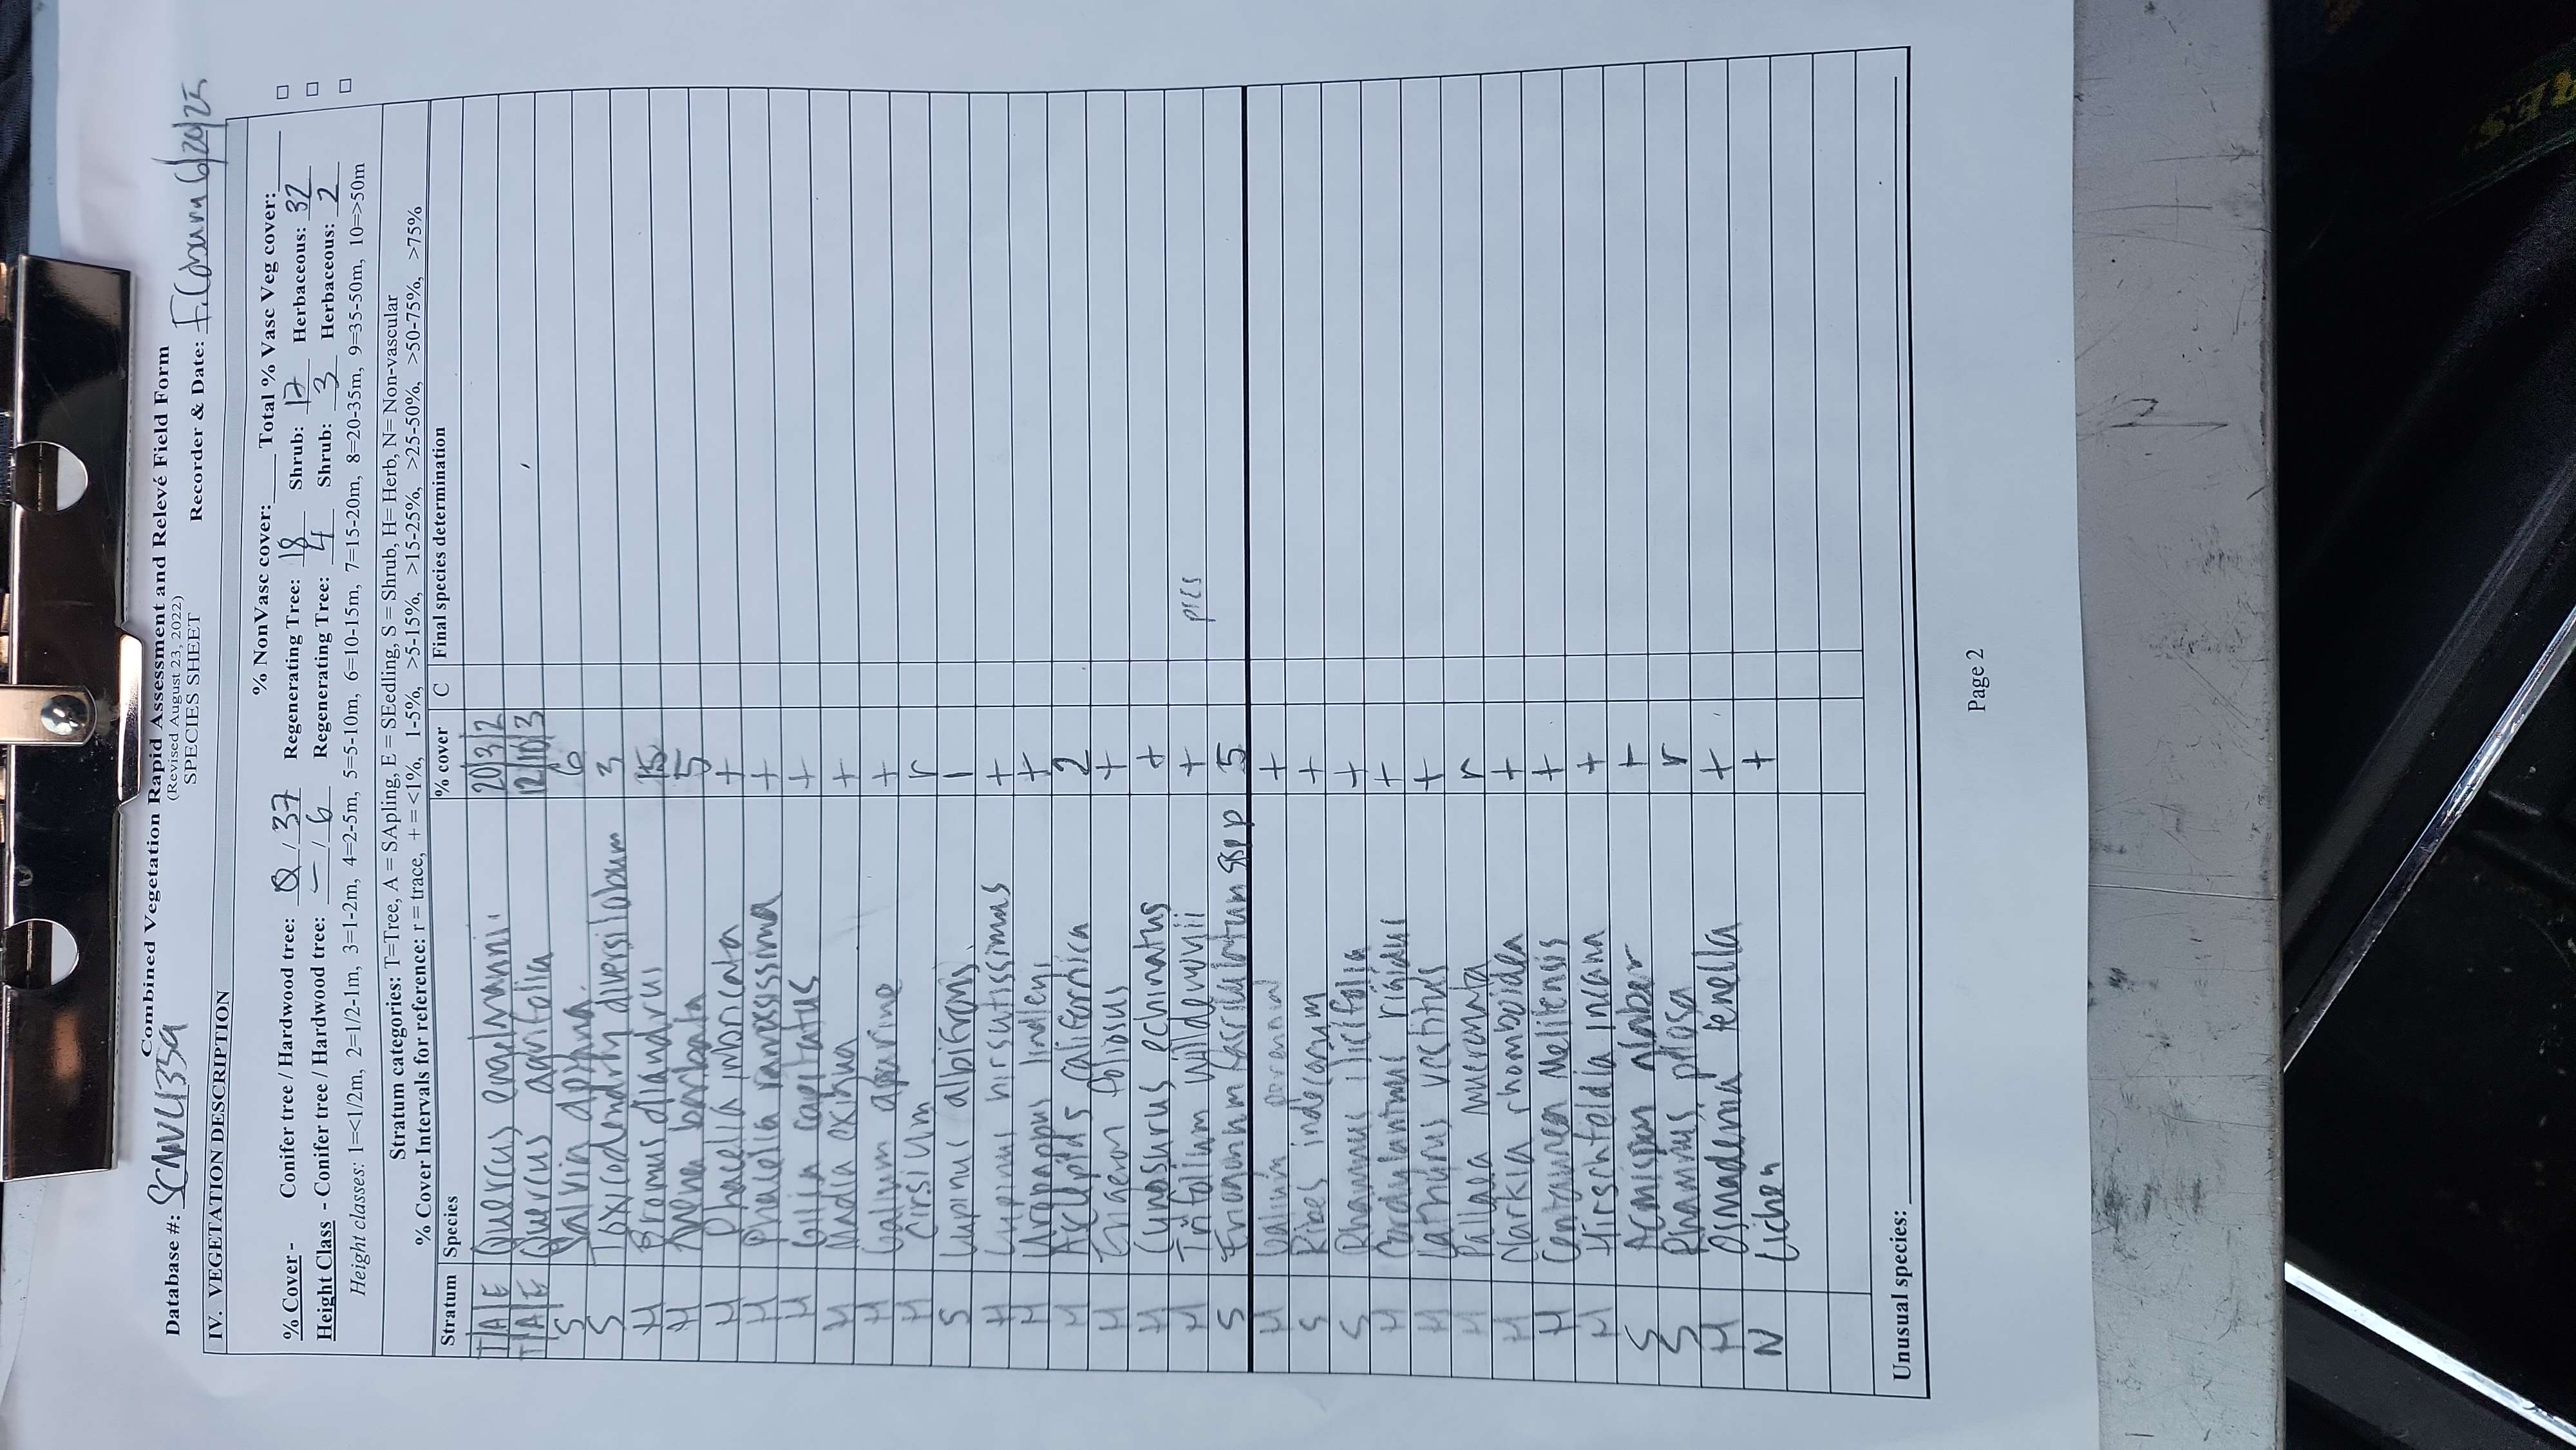 Combined Vegetation Rapid Assessment and Relevé Field Form
(Revised August 23, 2022)
SPECIES SHEET
Database #: SCMVU1359 Recorder & Date: 6/20/25
IV. VEGETATION DESCRIPTION
% NonVasc cover:____ Total % Vasc Veg cover:____ □
% Cover - Conifer tree / Hardwood tree: 0 / 37 Regenerating Tree: 18 Shrub: 17 Herbaceous: 32 □
Height Class - Conifer tree / Hardwood tree: — / 6 Regenerating Tree: 4 Shrub: 3 Herbaceous: 2 □
Height classes: 1=<1/2m, 2=1/2-1m, 3=1-2m, 4=2-5m, 5=5-10m, 6=10-15m, 7=15-20m, 8=20-35m, 9=35-50m, 10=>50m
Stratum categories: T=Tree, A = SApling, E = SEedling, S = Shrub, H= Herb, N= Non-vascular
% Cover Intervals for reference: r = trace, + = <1%, 1-5%, >5-15%, >15-25%, >25-50%, >50-75%, >75%
Stratum Species % cover C Final species determination
T/A/E Quercus engelmannii 20/3/2
T/A/E Quercus agrifolia 12/10/3
S Salvia apiana 6
S Toxicodendron diversilobum 3
H Bromus diandrus 15
H Avena barbata 5
H Phacelia imbricata +
H Phacelia ramosissima +
H Gilia capitatus +
H Madia exigua +
H Galium aparine +
H Cirsium r
S Lupinus albifrons 1
H Lupinus hirsutissimus +
H Uropappus lindleyi +
H Asclepias californica 2
H Erigeron foliosus +
H Cynosurus echinatus +
H Trifolium wildenovii + pics
S Eriogonum fasciculatum spp 5
H Galium perennial +
S Ribes indecorum +
S Rhamnus ilicifolia +
H Cordylanthus rigidus +
H Lathyrus vestitus +
H Pallaea mucronata r
H Clarkia rhomboidea +
H Centaurea Melitensis +
H Hirschfeldia incana +
S Acmispon glaber +
S Rhamnus pilosa r
H Osmadenia tenella +
N Lichen +
Unusual species:
Page 2